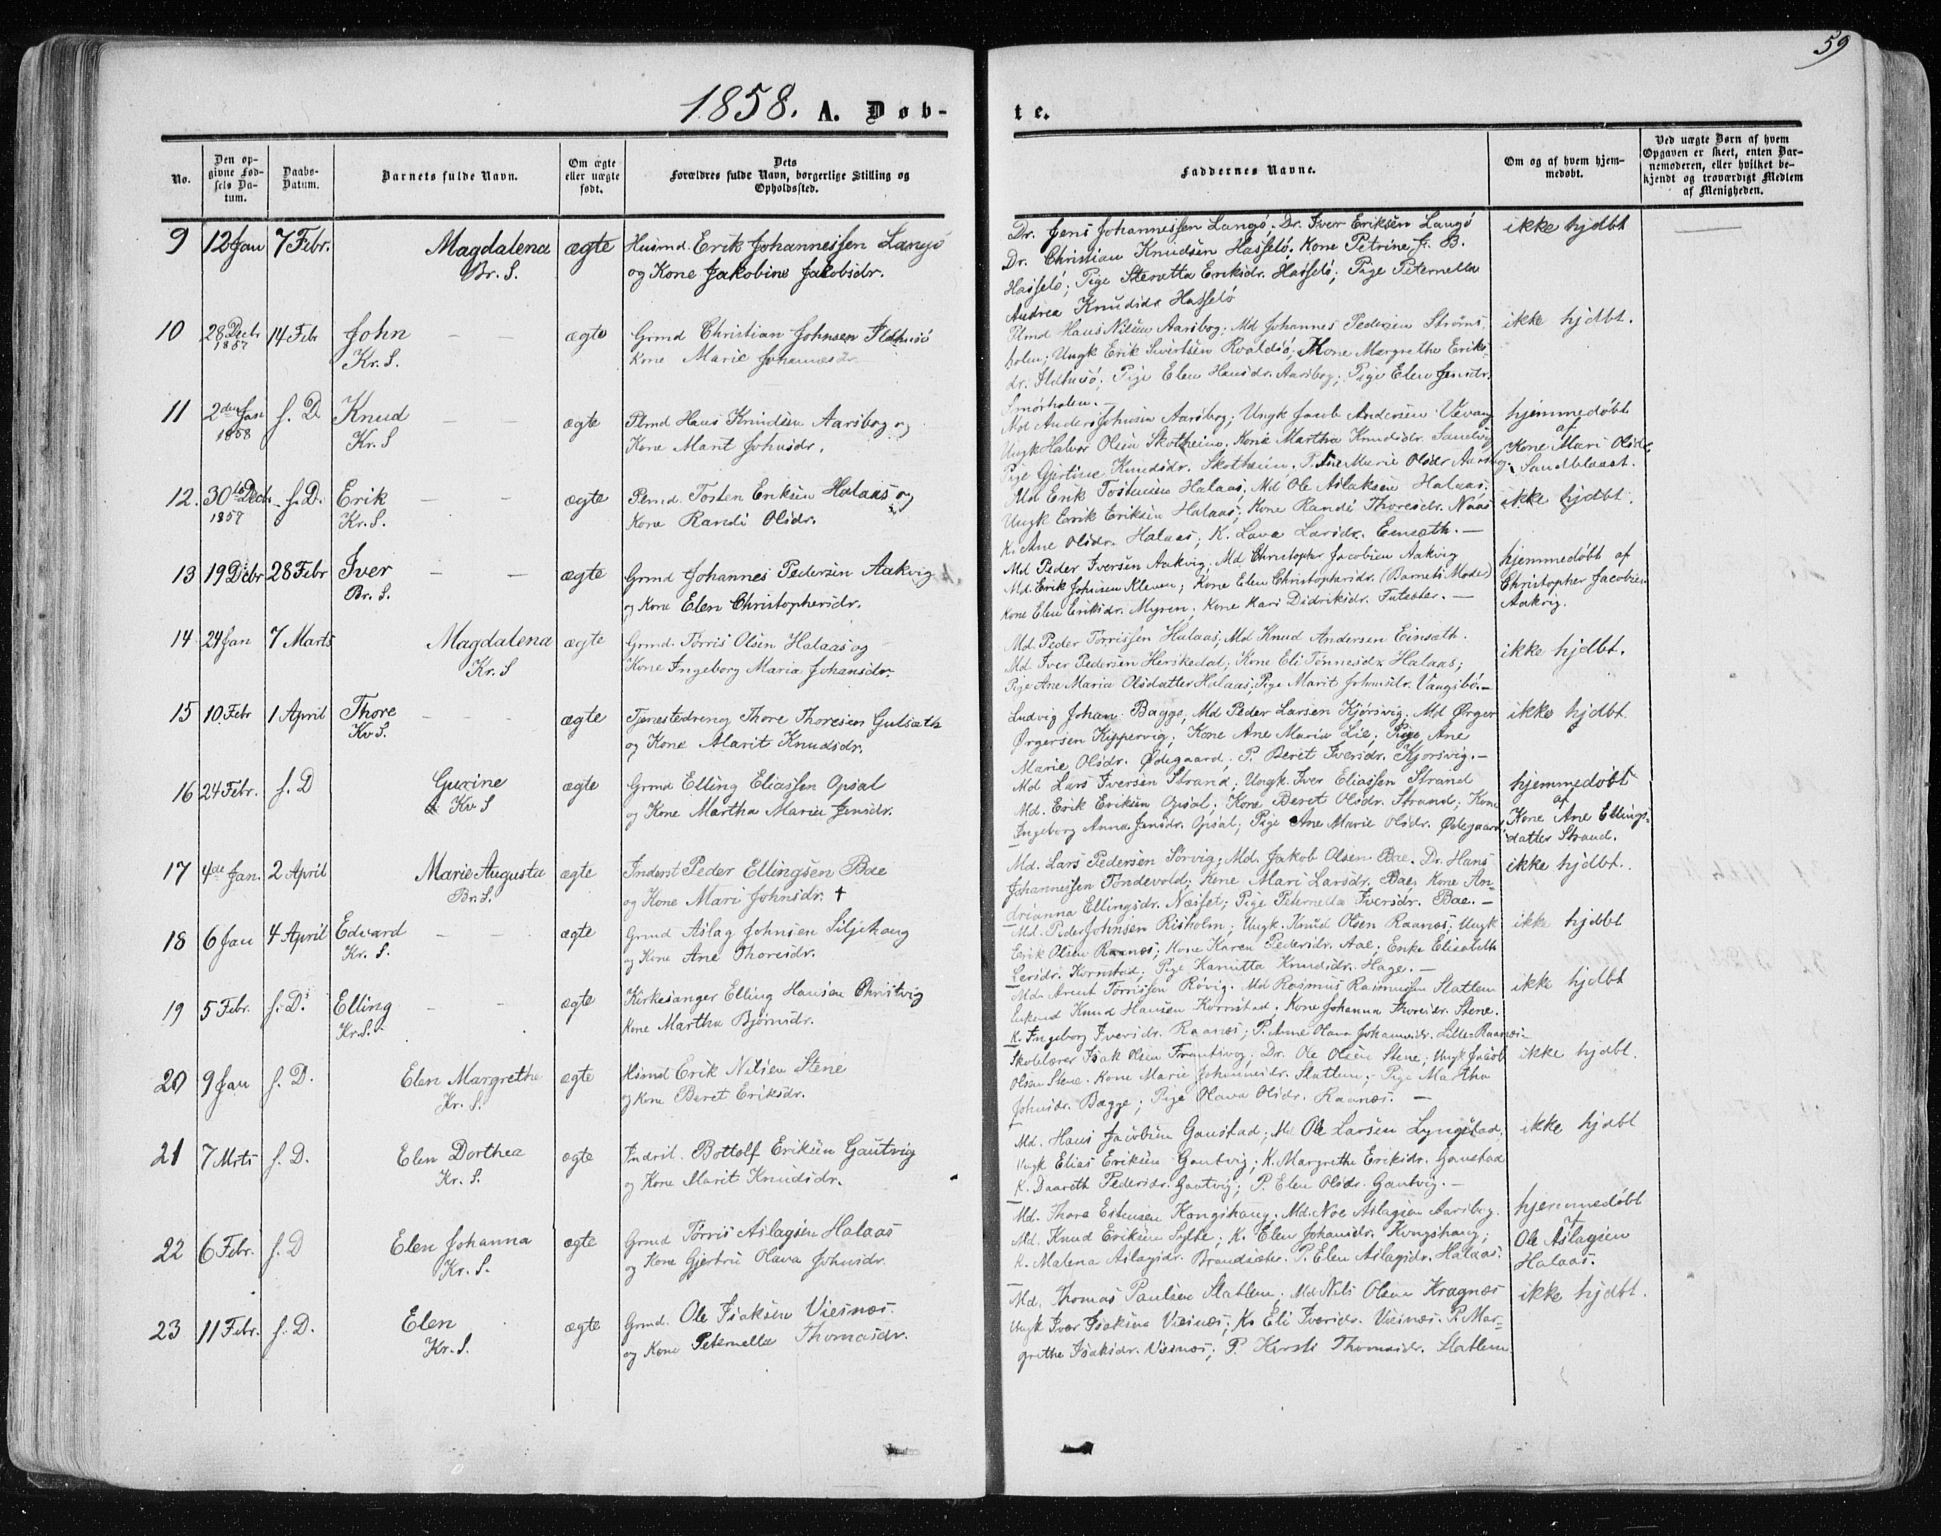 59
1858. A. Døb-
te.
No.
Den op-
givne Fød-
sels Da-
tum.
Daabs-
Datum.
Barnets fulde Navn.
Om ægte
eller uægte
født.
Dets
Forældres fulde Navn, borgerlige Stilling og
Opholdssted.
Faddernes Navne.
Om og af hvem hjem-
medøbt.
Ved uægte Børn af hvem
Opgaven er skeet, enten Bar-
nemoderen, eller hvilket be-
kjendt og troværdigt Medlem
af Menigheden.
9 12 Jan 7 Febr. Magdalena ægte Husmd. Erik Johannessen Langø
Br. S. og Kone Jakobine Jakobsdr.
Dr. Jens Johannessen Langø, Dr. Iver Eriksen Langø ikke hjdbt
Dr. Christian Knudsen Hasselø, Kone Petrine J. B.
Hasselø; Pige Eriksdr. Hasselø; Pige Peternella
Andrea Knudsdr Hasselø
10 28 Decbr 14 Febr John ægte Grmd Christian Johnsen
1857 Kr. S. Kone Marie Johannesdr.
Plmd Hans Nilsen Aarsbog; Md Johannes Pedersen Strøms- ikke hjdbt.
holm; Ungk Erik Sivertsen Roaldsø, Kone Margrethe Eriks-
dr. Pige Elen Hansdr. Aarsbog; Pige Elen Jensdr.
Smørholen.
11 2den Jan s. D. Knud ægte Plmd Hans Knudsen Aarsbog og
1858 Kr. S Kone Marit Johnsdr.
Md Anders Johnsen Aarsbog; Ungk Jacob Andersen Vevang hjemmedøbt
Ungk Halvor Olsen Skotheim. Kone Martha Knudsdr. Sandvig af
Pige Gjertine Knudsdr. Skotheim. P. Ane Marie Olsdr Aarsbog. Kone Mari Olsdr.
Sandblaast.
12. 30te Decbr. s. D. Erik ægte Plmd. Tosten Eriksen Halaas og
1857 Kr. S. Kone Randi Olsdr.
Md Erik Tostensen Halaas; Md Ole Aslaksen Halaas; ikke hjdbt.
Ungk Erik Eriksen Halaas; Kone Randi Thoresdr. Naas
K. Ane Olsdr. Halaas; K. Lava Larsdr. Einsæth.
13 19 Decbr 28 Febr Iver ægte Grmd Johannes Pedersen Aakvig
Br. S. og Kone Elen Christophersdr.
Md Peder Iversen Aakvig; Md Christopher Jacobsen Aakvig hjemmedøbt af
Md. Erik Johnsen Kleven; Kone Elen Christophersdr. (Barnets Moder) Christopher Jacobsen
Kone Elen Eriksdr. Myren. Kone Kari Didriksdr. Futsæter. Aakvig.
14 24 Jan 7 Marts Magdalena ægte Grmd. Torris Olsen Halaas og
Kr. S Kone Ingeborg Maria Johansdr.
Md. Peder Torrissen Halaas; Md Knud Andersen Einsæth. ikke hjdbt.
Md Iver Pedersen Herskedal; Kone Eli Tønnesdr. Halaas;
Pige Ane Maria Olsdatter Halaas; Pige Marit Johnsdr. Vangsbø.
15 10. Febr 1 April Thore ægte Tjenestedreng Thore Thoresen Gulsæth
Kr S. og Kone Marit Knudsdr.
Ludvig Johan Bagge, Md Peder Larsen Kjørsvig; Md Ørger ikke hjdbt.
Ørgersen Kippervig; Kone Ane Maria Lie; Pige Ane
Marie Olsdr. Ødegaard; P. Beret Iversdr. Kjorsvig.
16 24 Febr. s. D Gurine ægte Grmd Elling Eliassen Opsal
Kr S og Kone Martha Marie Jensdr.
Md Lars Iversen Strand; Ungk Iver Eliassen Strand hjemmedøbt
Md. Erik Eriksen Opsal; Kone Beret Olsdr. Strand; Kone af
Ingeborg Anna Jensdr. Opsal; Pige Ane Marie Olsdr. Ødegaard; Kone Ane Ellings-
datter Strand.
17 4de Jan. 2 April Marie Augusta ægte Inderst Peder Ellingsen Bae
Br. S. og Kone Mari Johnsdr. †
Md. Lars Pedersen Sorvig; Md. Jakob Olsen Bae. Dr. Hans ikke hjdbt.
Johannessen Tøndevold; Kone Mari Larsdr. Bae; Kone An-
drianna Ellingsdr. Næsset; Pige Peternella Iversdr. Bae.
18 6 Jan 4 April Edvard ægte Grmd Aslag Johnsen Siljehaug
Kr. S. og Kone Ane Thoresdr.
Md. Peder Johnsen Risholm; Ungk Knud Olsen Raanæs; Ungk ikke hjdbt
Erik Olsen Raanæs; Kone Karen Pedersdr. Aae; Enke Elisabeth
Larsdr. Kornstad; Pige Knudsdr. Hage.
19 5 Febr. s. D. Elling ægte Kirkesanger Elling Hansen Christvig
Kr. S. Kone Martha Bjørnsdr.
Md. Arent Torrissen Røvig. Md Rasmus Rasmussen Slatlem ikke hjdbt
Enkemd Knud Hansen Kornstad; Kone Johanna Thoresdr. Stene.
K. Ingeborg Iversdr. Raanæs; P. Anne Olava Johannesdr. Lille Raanæs
20 9 Jan s. D. Elen Margrethe ægte Hsmd Erik Nilsen Stene
Kr. S. og Kone Beret Eriksdr.
Skolelærer Isak Olsen Frantsvog; Dr. Ole Olsen Stene; Ungk Jacob ikke hjdbt.
Olsen Stene. Kone Marie Johannesdr. Slatlem; Pige Martha
Johnsdr. Bagge; Pige Olava Olsdr. Raanæs.
21 7 Mrts s. D. Elen Dorthea ægte Indrst. Bottolf Eriksen Gautvig
Kr. S. og Kone Marit Knudsdr.
Md. Hans Jacobsen Gaustad; Md Ole Larsen Lyngstad, ikke hjdbt
Ungk Elias Eriksen Gautvig; K. Margrethe Eriksdr. Gaustad
K. Daareth Pedersdr. Gautvig; P. Elen Olsdr. Gautvig.
22 6 Febr. s. D Elen Johanna ægte Grmd Torris Aslagsen Halaas
Kr. S. og Kone Gjertru Olava Johnsdr.
Md. Thore Estensen Kongshaug; Md. Noe Aslagsen Aarsbog. hjemmedøbt
Md. Knud Eriksen Sylte; K. Elen Johansdr. Kongshaug; af
K. Malena Aslagsdr. Brandsæter. P. Elen Aslagsdr. Halaas. Ole Aslagsen
Halaas.
23 11 Febr. s. D. Elen ægte Grmd. Ole Isaksen Viesnæs.
Kr. S. og Kone Peternella Thomasdr.
Md. Thomas Paulsen Slatlem; Md Nils Olsen Kragnæs ikke hjdbt.
Ungk Iver Isaksen Viesnæs; K. Eli Iversdr. Viesnæs. P. Mar-
grethe Isaksdr. Viesnæs; P. Kirsti Thomasdr. Slatlem